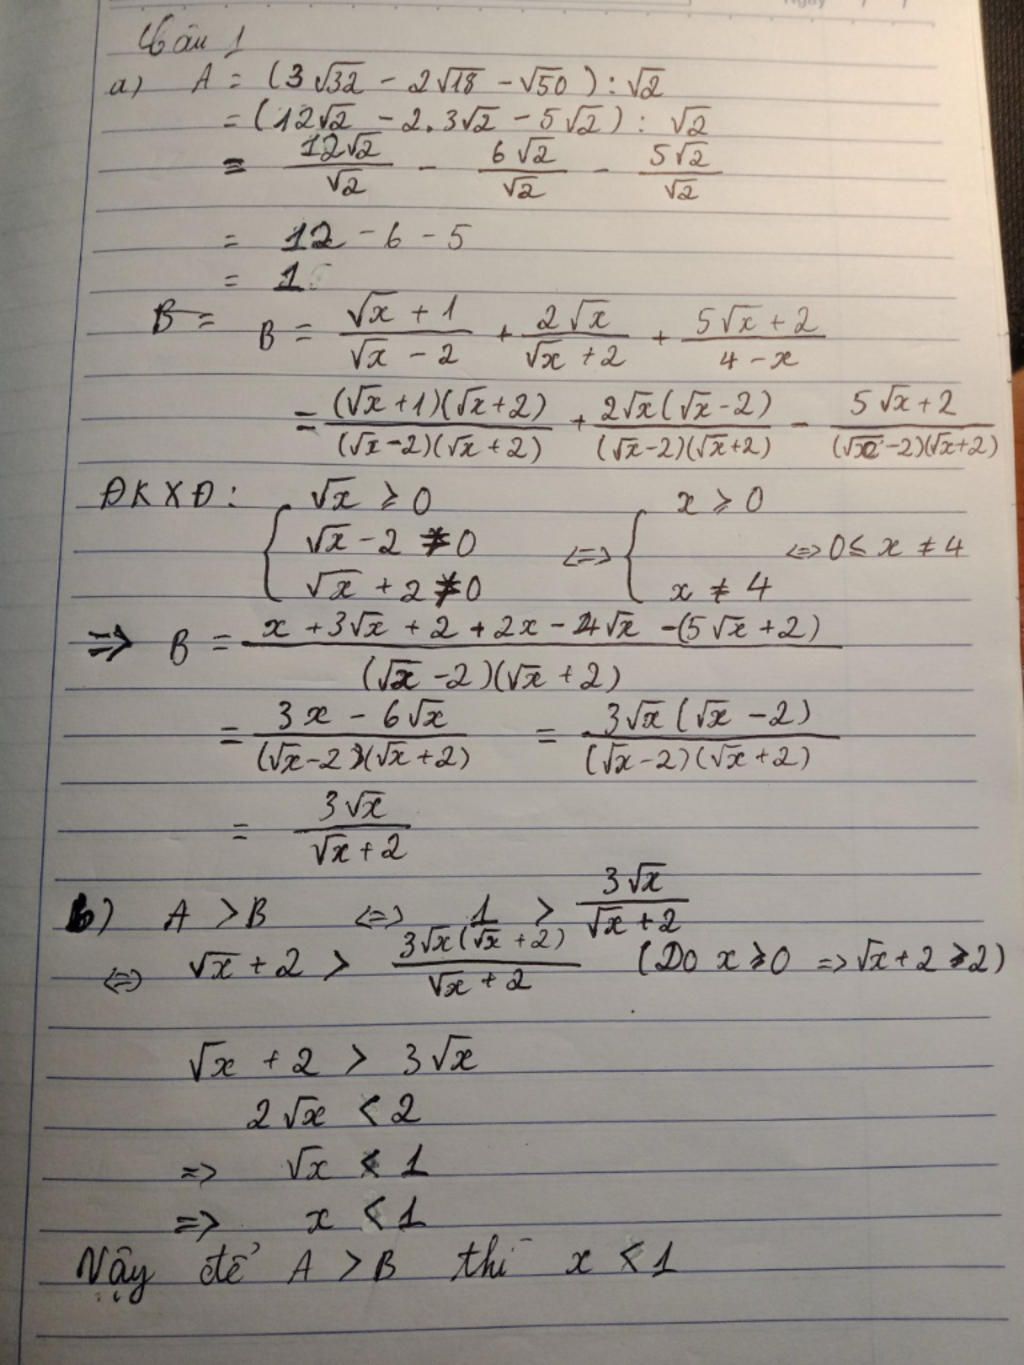 Câu 1
a) A = (3√32 - 2√18 - √50) : √2
= (12√2 - 2.3√2 - 5√2) : √2
= 12√2/√2 - 6√2/√2 - 5√2/√2
= 12 - 6 - 5
= 1
B = B = (√x + 1)/(√x - 2) + 2√x/(√x + 2) + (5√x + 2)/(4 - x)
= (√x + 1)(√x + 2)/(√x - 2)(√x + 2) + 2√x(√x - 2)/(√x - 2)(√x + 2) - (5√x + 2)/(√x - 2)(√x + 2)
ĐKXĐ: { √x ≥ 0 ; √x - 2 ≠ 0 ; √x + 2 ≠ 0 <=> { x ≥ 0 ; x ≠ 4 <=> 0 ≤ x ≠ 4
=> B = (x + 3√x + 2 + 2x - 4√x - (5√x + 2))/(√x - 2)(√x + 2)
= (3x - 6√x)/(√x - 2)(√x + 2) = 3√x(√x - 2)/(√x - 2)(√x + 2)
= 3√x/(√x + 2)
b) A > B <=> 1 > 3√x/(√x + 2)
<=> √x + 2 > 3√x(√x + 2)/(√x + 2) (Do x ≥ 0 => √x + 2 ≥ 2)
√x + 2 > 3√x
2√x < 2
=> √x < 1
=> x < 1
Vậy để A > B thì x < 1